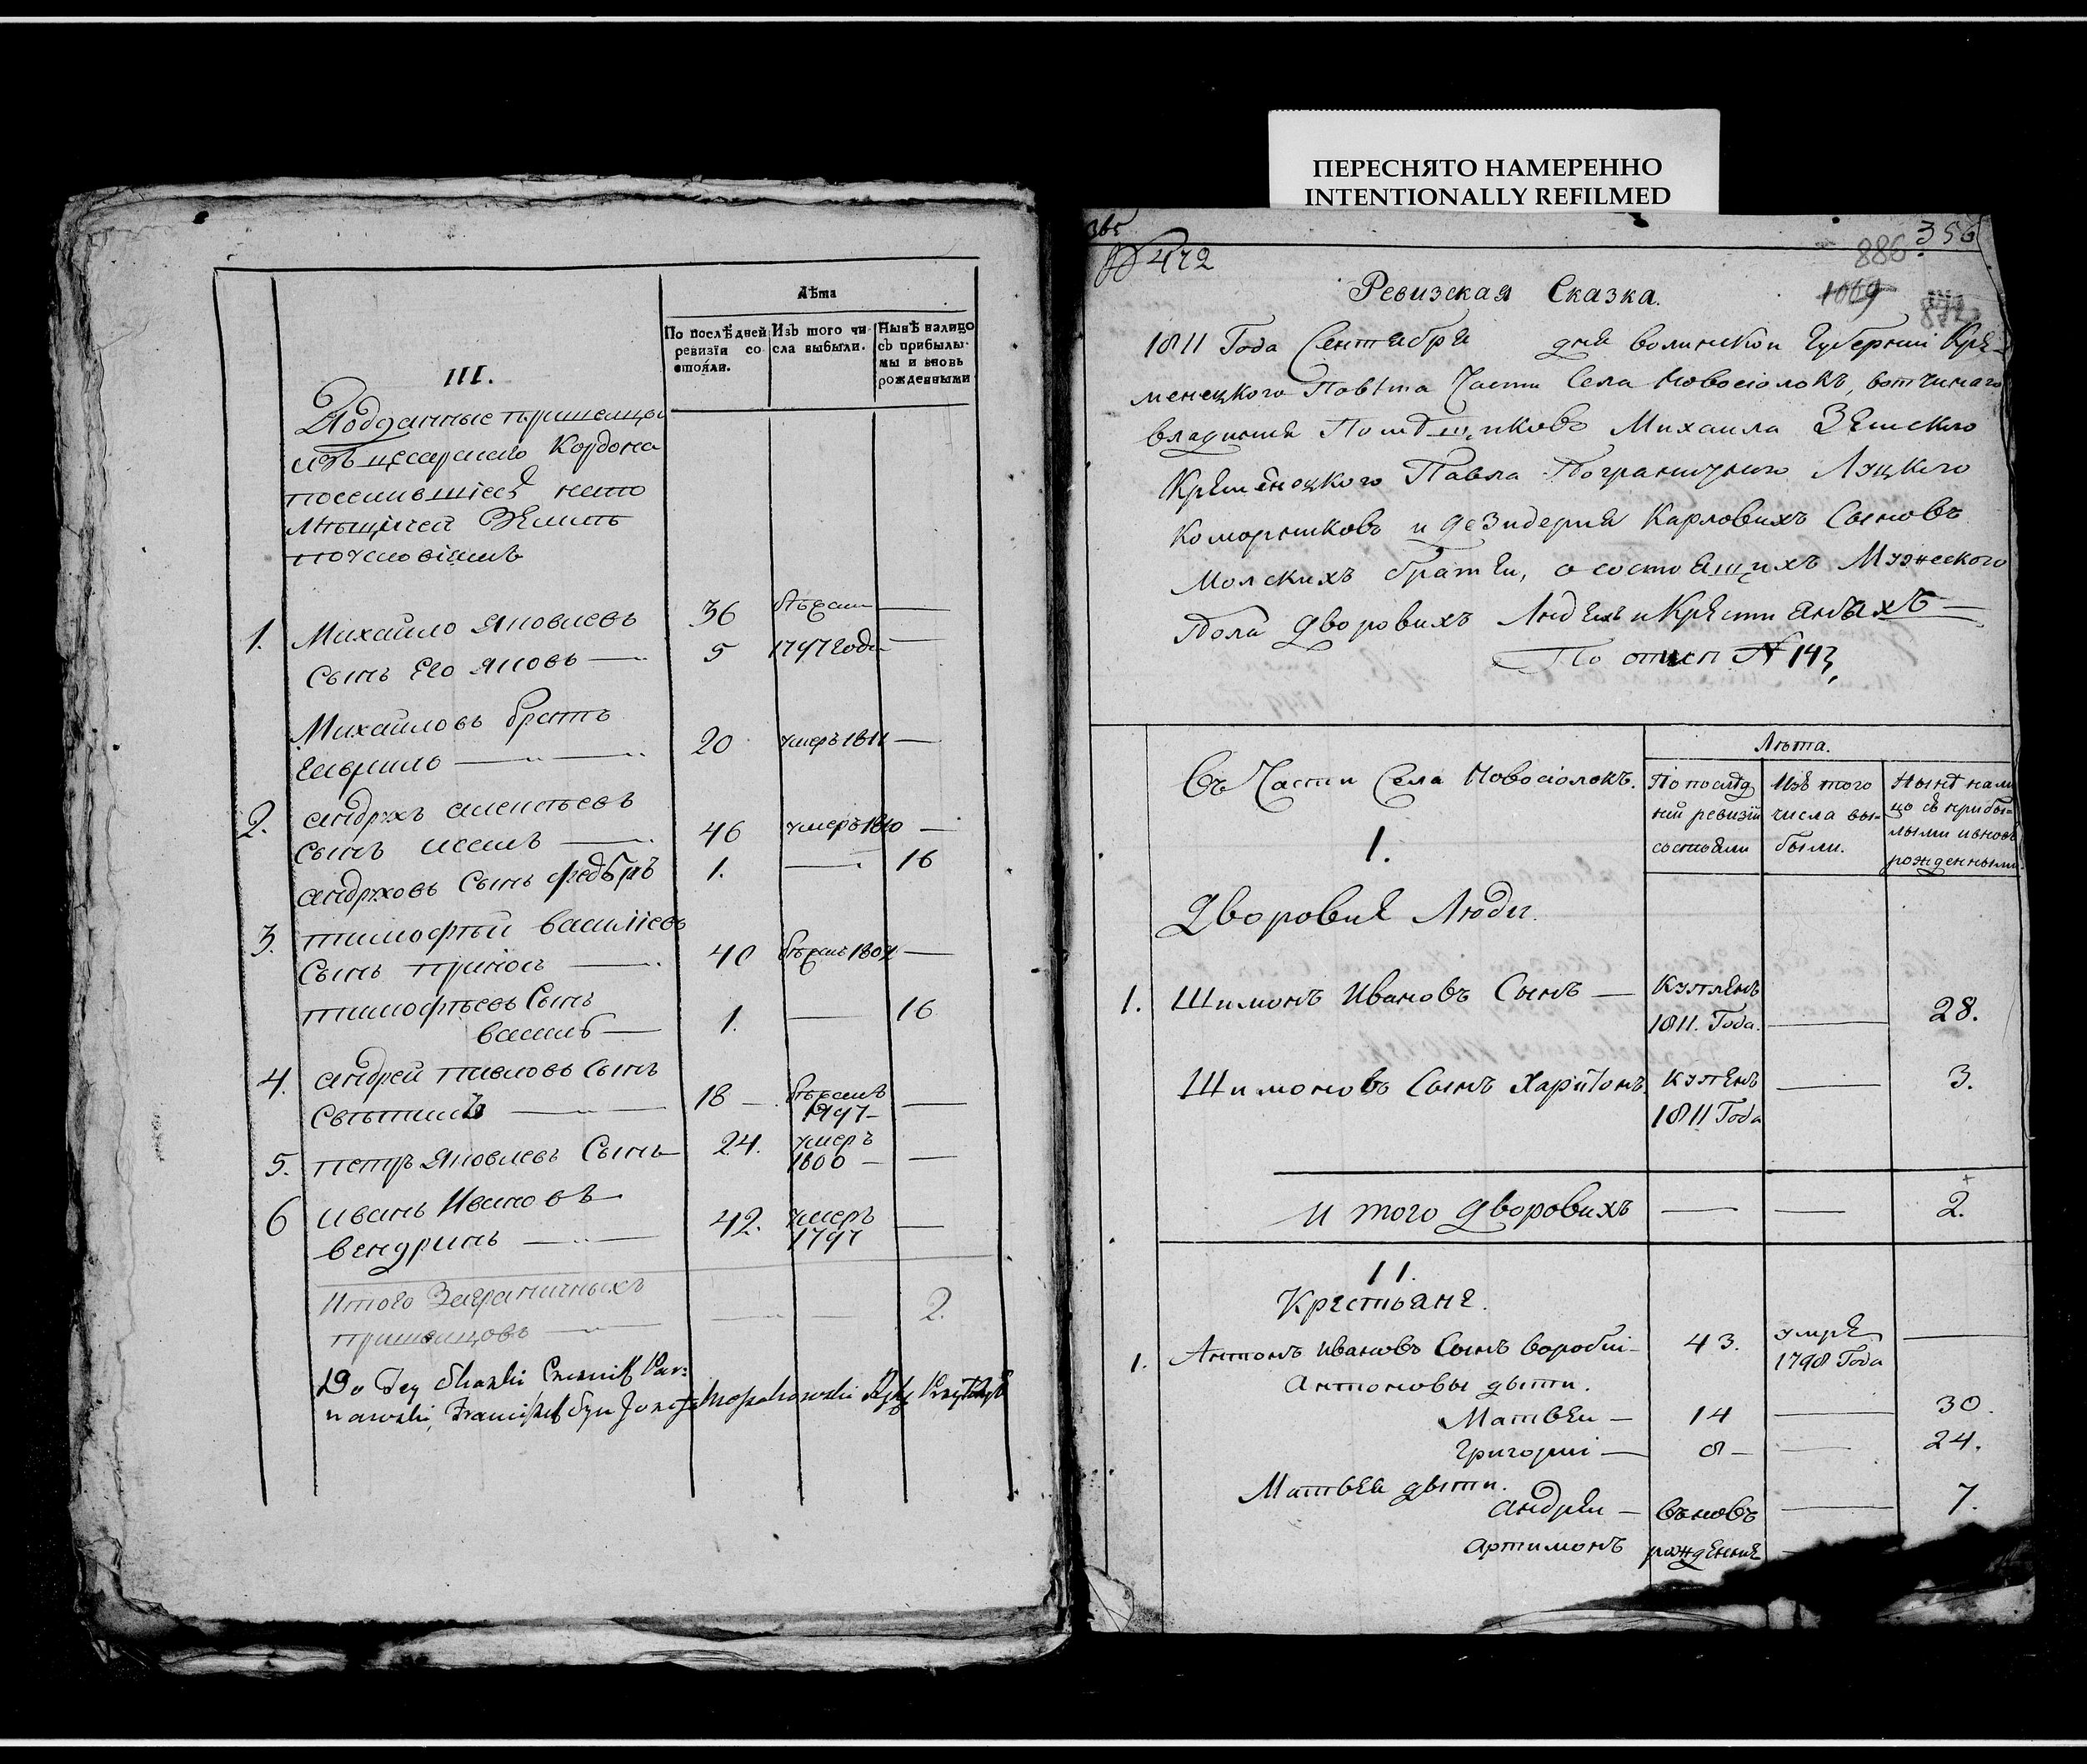 ПЕРЕСНЯТО НАМЕРЕННО
INTENTIONALLY REFILMED
Лѣта
По послѣдней ревизїи состояли.
Изъ того числа выбыли.
Нынѣ налицо съ прибылыми и вновь рожденными
III.
Подданные пришелцы
изъ цесарскаго Кордона
поселившіесѧ
1. Михайло Яковлевъ 36 бѣжали —
сынъ Его Яковъ — 5 1797 Года —
Михайловъ братъ
Гаврило — 20 умеръ 1811 —
2. андрухъ
сынъ — 46 умеръ 1810 —
андруховъ Сынъ Федоръ 1. — 16
3. тимофѣй василіевъ
Сынъ — 40 бѣжалъ —
тимофѣевъ Сынъ
василь — 1. — 16
4. андрей павловъ Сынъ
18 — бѣжалъ 1797 —
5. петръ Яковлевъ Сынъ 24. умеръ 1800 — —
6 иванъ Ивановъ
вендринъ — 42. умеръ 1797 —
Итого Заграничныхъ
пришелцовъ — — — 2.
365
356
№ 472
886.
1069
872
Ревизская Сказка.
1811 Года Сентября дня волинской Губерніи Кре-
менецкого Повѣта Части Села Новосіолокъ, вотчинаго
владѣнія Помѣщиковъ Михаила Земского
Кременецкого Павла Пограничного Луцкого
Коморниковъ и дезидерия Карловихъ Сыновъ
Молскихъ братеи, о состоящихъ Мужеского
Пола дворовихъ Людехъ и Крестиянахъ —
По описи № 143,
Въ Части Села Новосіолокъ.
Лѣта.
По послѣдней ревизіи состояли
Изъ того числа выбыли.
Нынѣ налицо съ прибылыми и вновь рожденными.
1.
Дворовие Люди.
1. Шимонъ Ивановъ Сынъ — купленъ 1811. Года. — 28.
Шимоновъ Сынъ Харитонъ купленъ 1811 Года — 3.
И того дворовихъ — — 2.
11.
Крестьяне.
1. Антонъ Ивановъ Сынъ воробій — 43. умре 1798 Года —
Антоновы дѣти.
Матвеи — 14 — 30.
Григорій — 8 — — 24.
Матвея дѣти.
андреи — вновь — 7.
артимонъ рожденние —